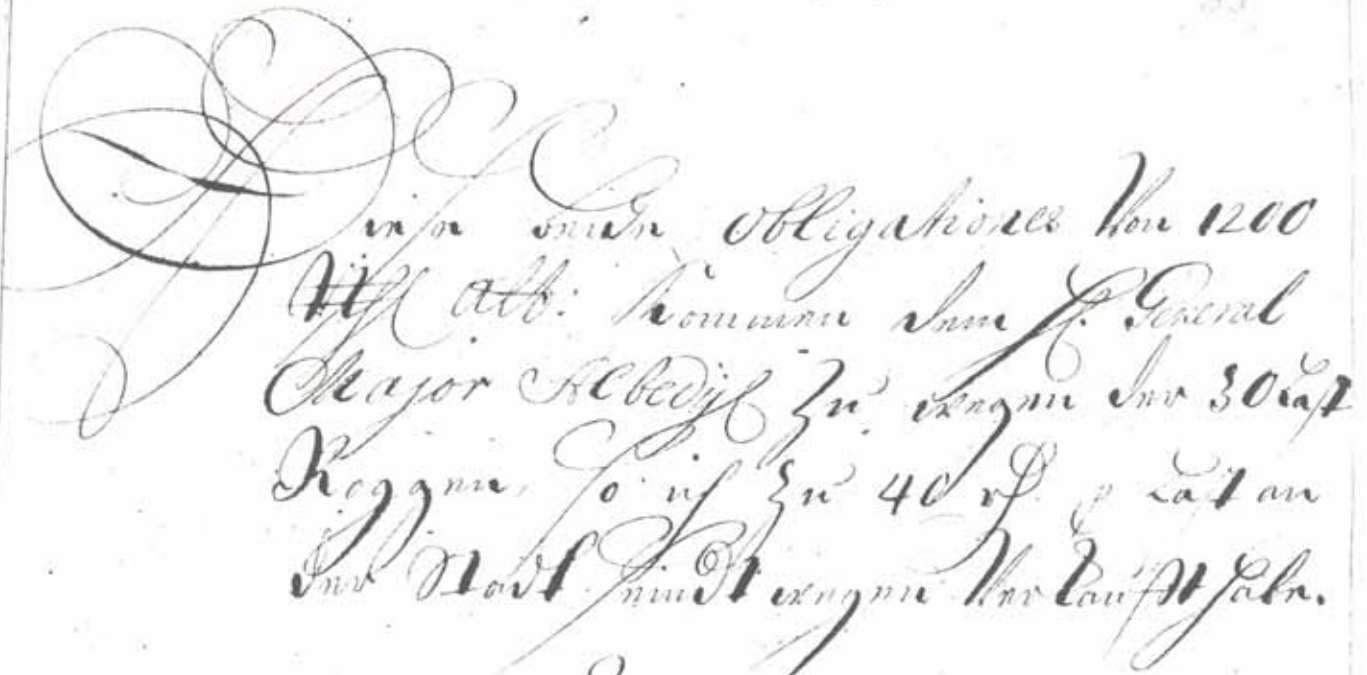 Diese beide Obligationes Von 1200
Rthl Alb: kommen dem H. General
Major Albedÿl zu wegen der 30 Last
Roggen, so ich zu 40 rthl p Last an
der Stadt wegen Verkaufft habe.